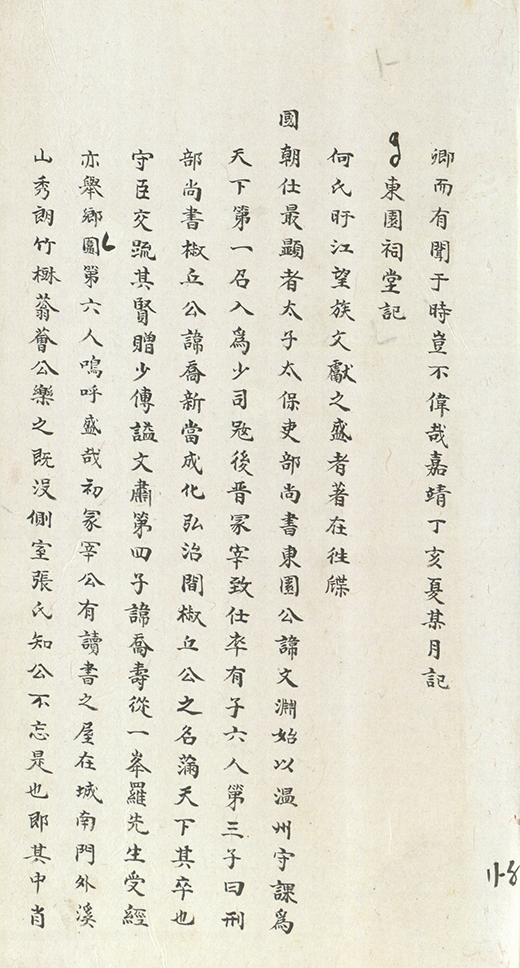 卿而有聞于時豈不偉哉嘉靖丁亥夏某月記
東園祠堂記
何氏旴江望族文獻之盛者著在徃牒
國朝仕最顯者太子太保吏部尚書東園公諱文淵始以温州守課爲
天下第一召入爲少司寇後晋冡宰致仕卒有子六人第三子曰刑
部尚書椒丘公諱喬新當成化弘治間椒丘公之名滿天下其卒也
守臣交䟽其賢贈少傳謚文肅第四子諱喬壽從一峯羅先生受經
亦舉鄉圍第六人嗚呼盛哉初冡宰公有讀書之屋在城南門外溪
山秀朗竹樹蓊薈公樂之既没側室張氏知公不忘是也即其中肖
11-8